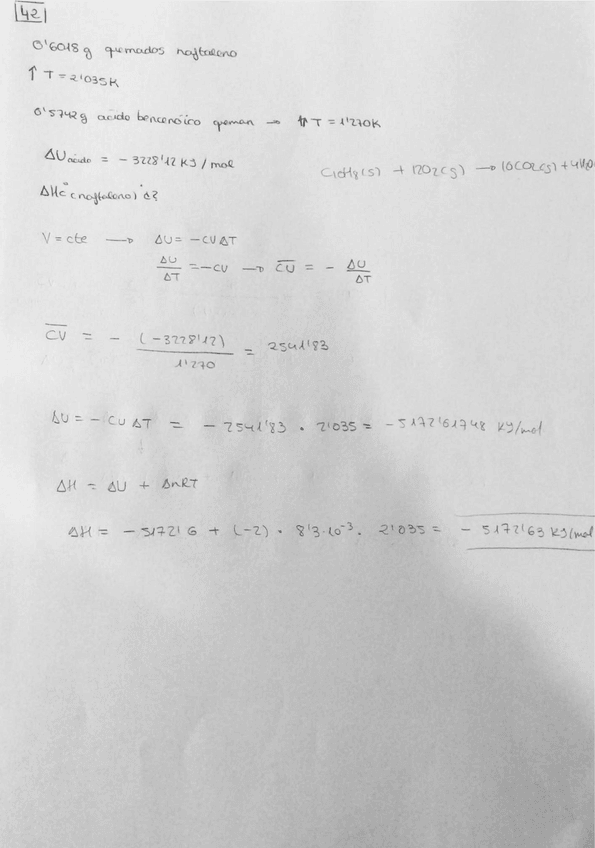 42
0'6018 g quemados naftaleno
↑ T = 2'035K
0'5742g ácido bencenóico queman → ↑ T = 1'270K
ΔUácido = - 3228'12 KJ / mol
C10H8(s) + 12O2(g) → 10CO2(g) + 4H2O
ΔHc° (naftaleno) ¿?
V = cte → ΔU = -CV ΔT
ΔU/ΔT = -CV → CV = - ΔU/ΔT
CV = - (-3228'12)/1'270 = 2541'83
ΔU = - CV ΔT = - 2541'83 . 2'035 = - 5172'61748 KJ/mol
ΔH = ΔU + ΔnRT
ΔH = - 5172'6 + (-2) . 8'3·10-3 . 2'035 = - 5172'63 KJ/mol